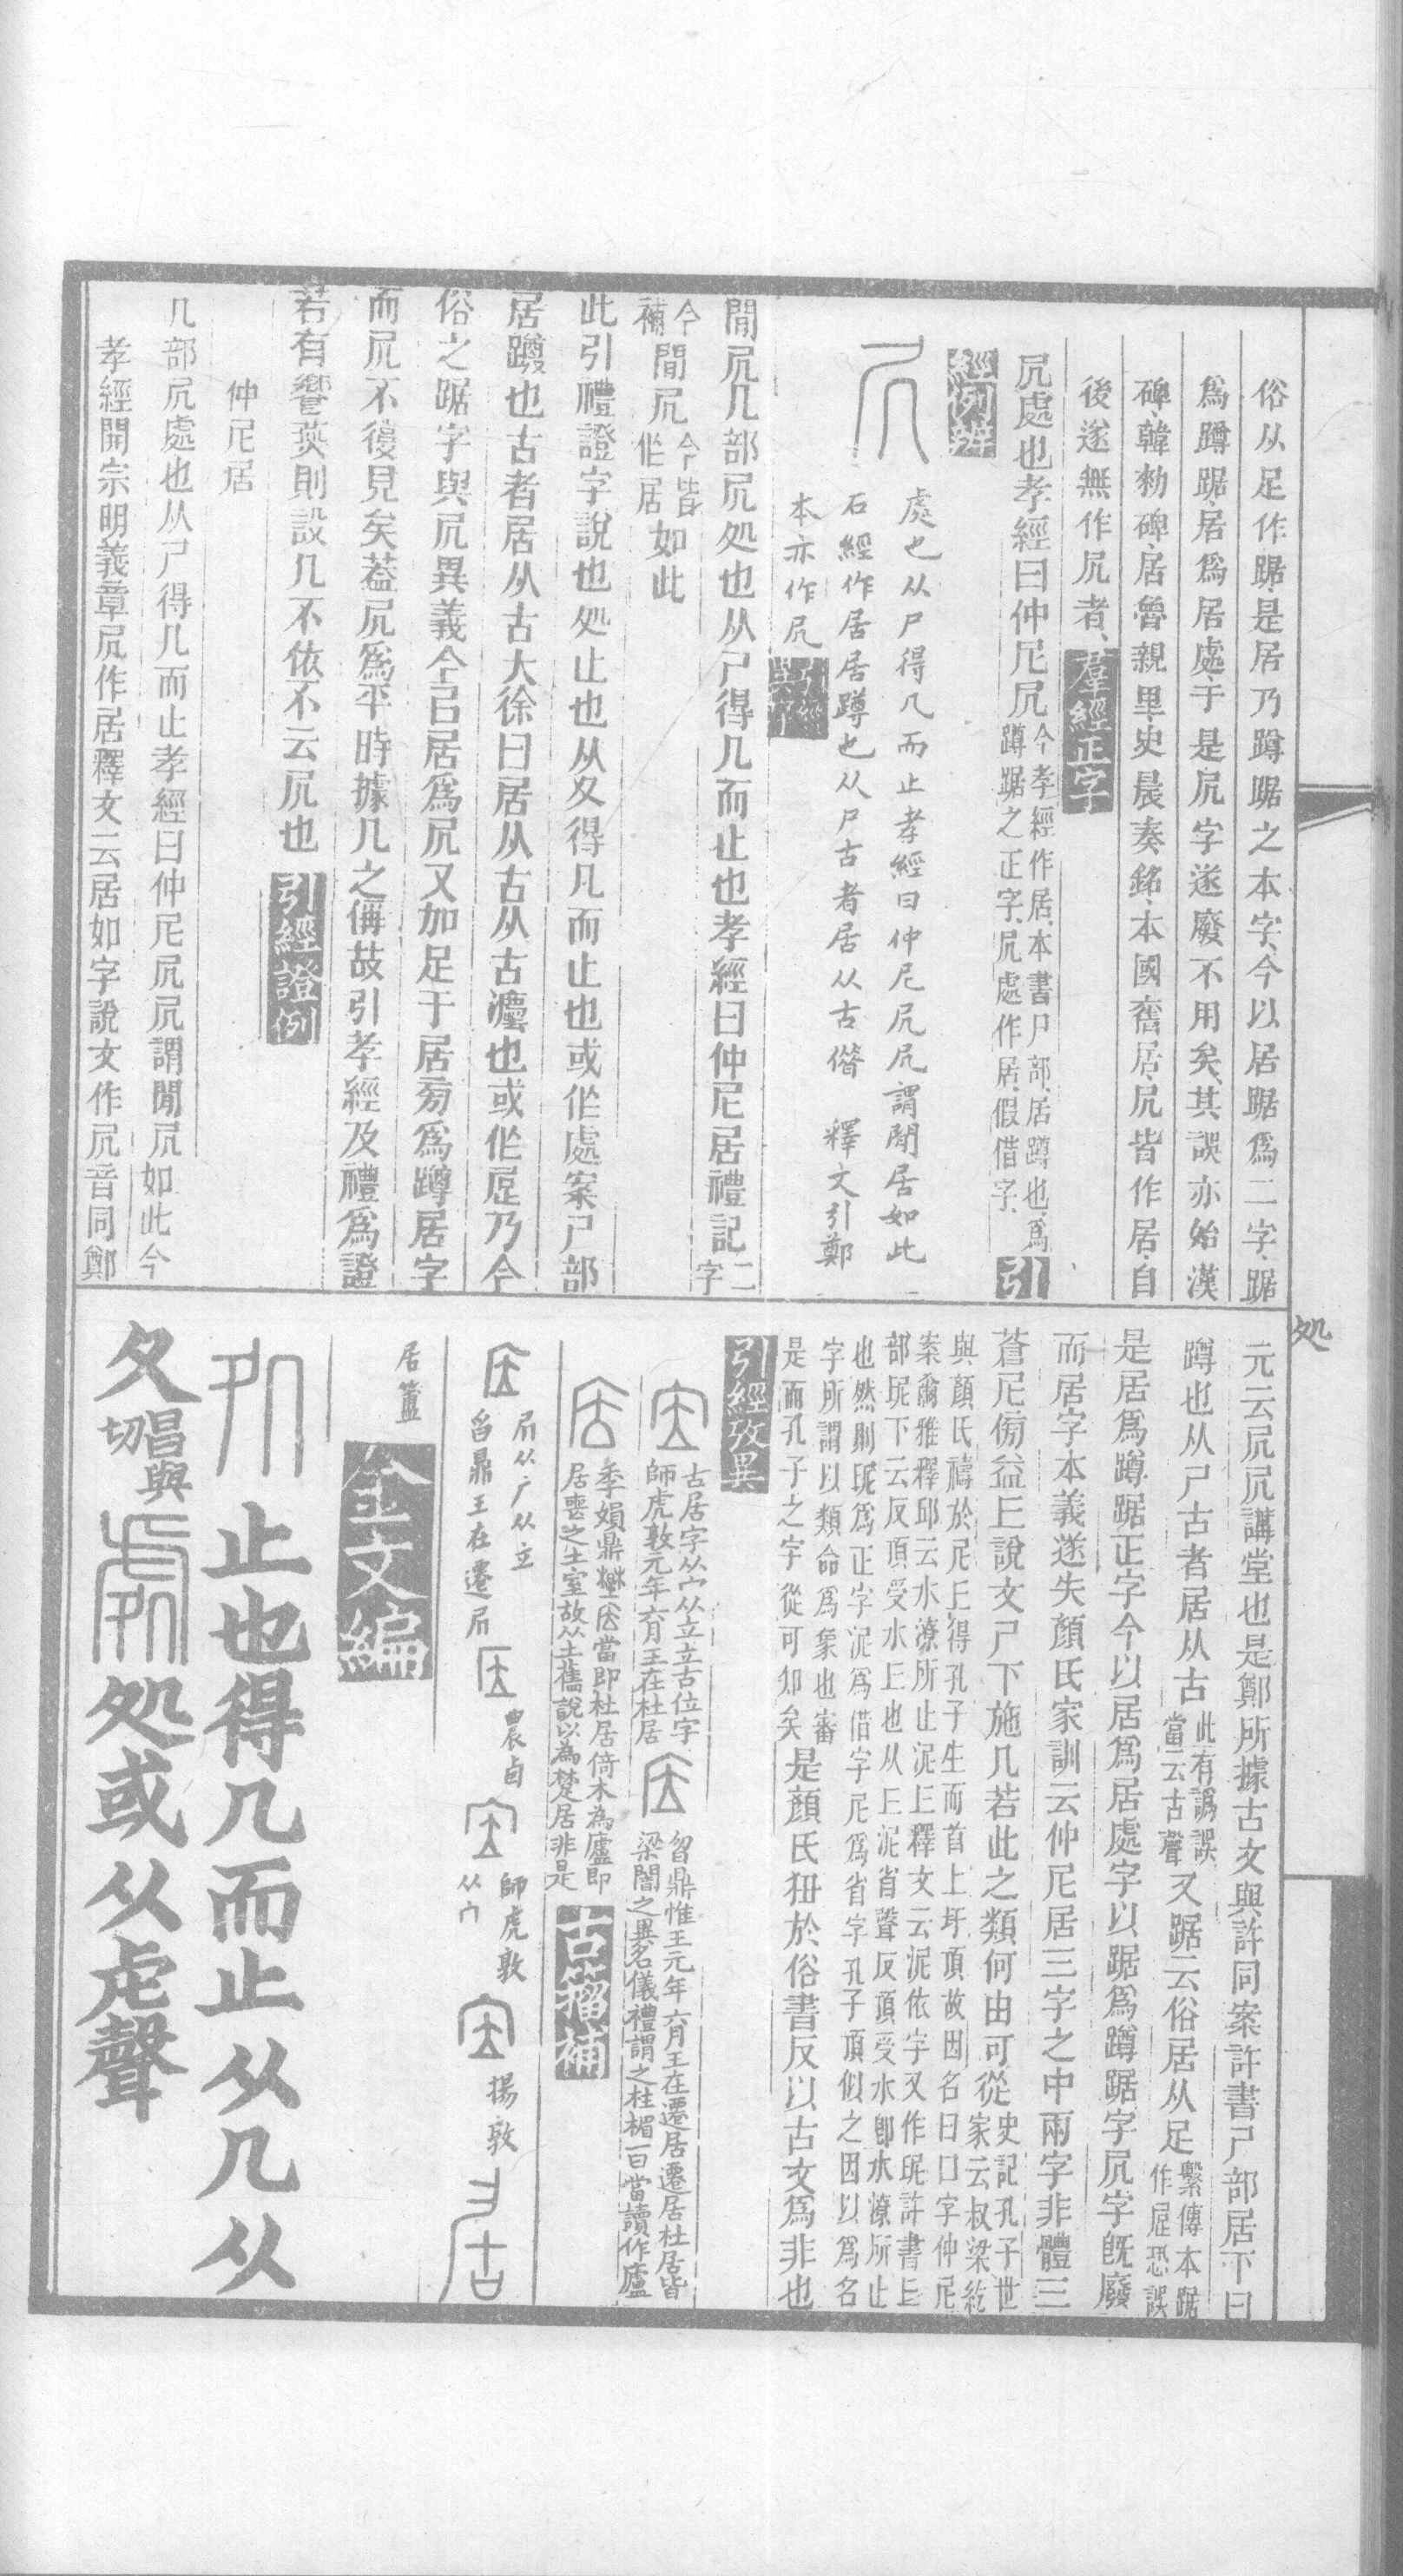 俗从足作踞是居乃蹲踞之本字今以居踞爲二字踞
爲蹲踞居爲居處于是凥字遂廢不用矣其誤亦始漢
碑韓勑碑居魯親里史晨奏銘本國舊居凥皆作居自
後遂無作凥者羣經正字
凥處也孝經曰仲尼凥今孝經作居本書尸部居蹲也爲
蹲踞之正字凥處作居假借字引
經列辨
處也从尸得几而止孝經曰仲尼凥凥謂閒居如此
石經作居居蹲也从尸古者居从古偺 釋文引鄭
本亦作凥引經
閒凥几部凥処也从尸得几而止也孝經曰仲尼居禮記二
字
今
補閒凥今皆
作居如此
此引禮證字說也処止也从夊得几而止也或作處案尸部
居蹲也古者居从古大徐曰居从古从古灋也或作屈乃今
俗之踞字與凥異義今㠯居爲凥又加足于居㫄爲蹲居字
而凥不復見矣葢凥爲平時據几之偁故引孝經及禮爲證
若有饗燕則設几不依不云凥也引經證例
仲尼居
几部凥處也从尸得几而止孝經曰仲尼凥凥謂閒凥如此今
孝經開宗明義章凥作居釋文云居如字說文作凥音同鄭
処
元云凥凥講堂也是鄭所據古文與許同案許書尸部居下曰
蹲也从尸古者居从古此有譌誤
當云古聲又踞云俗居从足繫傳本踞
作屈恐誤
是居爲蹲踞正字今以居爲居處字以踞爲蹲踞字凥字旣廢
而居字本義遂失顏氏家訓云仲尼居三字之中兩字非體三
蒼尼㫄益丘說文尸下施几若此之類何由可從史記孔子世
家云叔梁紇
與顏氏禱於尼丘得孔子生而首上圩頂故因名曰丘字仲尼
案爾雅釋邱云水潦所止泥丘釋文云泥依字又作坭許書丘
部坭下云反頂受水丘也从丘泥省聲反頂受水卽水潦所止
也然則坭爲正字泥爲借字尼爲省字孔子頂似之因以爲名
字所謂以類命爲象也審
是而孔子之字從可知矣是顏氏狃於俗書反以古文爲非也
引經攷異
古居字从宀从立立古位字
師虎敦元年六月王在杜居
曶鼎惟王元年六月王在遷居遷居杜居皆
梁闇之異名儀禮謂之柱楣一曰當讀作廬
季娟鼎當卽杜居倚木為廬卽
居喪之土室故从土舊說以為楚居非是古籀補
㡴从广从立
曶鼎王在遷㡴
農卣
師虎敦
从宀
揚敦
居簠 金文編
止也得几而止从几从
夊昌與
切處処或从虍聲